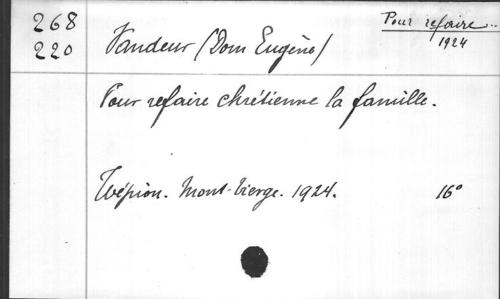 268
220
Vandeur (Dom Eugène)
Pour refaire...
1924
Pour refaire chrétienne la famille.
Wépion. Mont-Vierge. 1924. 16°